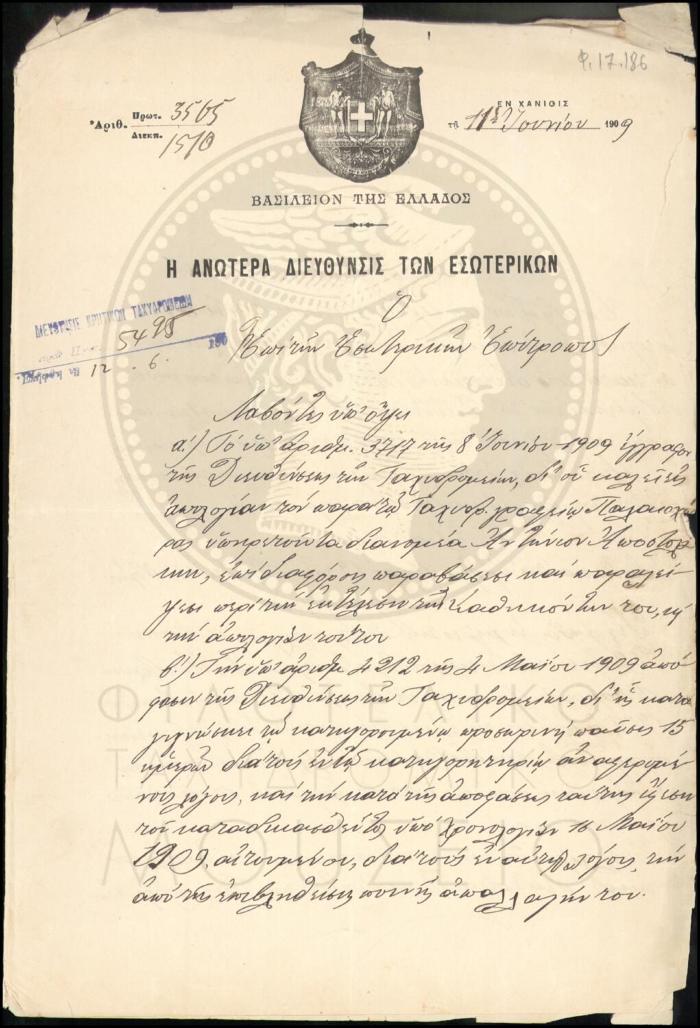 Φ.17.186
Ἀριθ. Πρωτ. 3565
Διεκπ. 1510
ΕΝ ΧΑΝΙΟΙΣ
τῇ 11ῃ Ἰουνίου 1909
ΒΑΣΙΛΕΙΟΝ ΤΗΣ ΕΛΛΑΔΟΣ
Η ΑΝΩΤΕΡΑ ΔΙΕΥΘΥΝΣΙΣ ΤΩΝ ΕΣΩΤΕΡΙΚΩΝ
ΔΙΕΥΘΥΝΣΙΣ ΚΡΗΤΙΚΩΝ ΤΑΧΥΔΡΟΜΕΙΩΝ
5495
190
12 . 6.
Ὁ
Ἐπὶ τῶν Ἐσωτερικῶν Ἐπίτροπος
Λαβόντες ὑπ' ὄψει
α') Τὸ ὑπ' ἀριθμ. 3717 τῆς 8 Ἰουνίου 1909 ἔγγραφον
τῆς Διευθύνσεως τῶν Ταχυδρομείων, δι' οὗ καλεῖ εἰς
ἀπολογίαν τὸν παρὰ τῷ Ταχυδρ. γραφείῳ Παλαιοχώ
ρας ὑπηρετοῦντα διανομέα Ἀντώνιον Ἀποστολά
κην, ἐπὶ διαφόροις παραβάσεσι καὶ παραλεί
ψεσι περὶ τὴν ἐκτέλεσιν τῶν καθηκόντων του, κ
τὴν ἀπολογίαν τούτου
β') Τὴν ὑπ' ἀριθμ 4212 τῆς 4 Μαΐου 1909 ἀπό
φασιν τῆς Διευθύνσεως τῶν Ταχυδρομείων, δι' ἧς κατα
γιγνώσκει τῷ κατηγορουμένῳ προσωρινὴ παῦσις 15
ἡμερῶν διὰ τοὺς ἐν τῷ κατηγορητηρίῳ ἀναφερομέ
νους λόγους, καὶ τὴν κατὰ τῆς ἀποφάσεως ταύτης ἔφεσιν
τοῦ καταδικασθέντος ὑπὸ χρονολογίαν 16 Μαΐου
1909, αἰτουμένου, διὰ τοὺς ἐν αὐτῇ λόγους, τὴν
ἀπὸ τῆς ἐπιβληθείσης ποινῆς ἀπαλλαγήν του.
ΦΙΛΟΤΕΛΙΚΟ
ΤΑΧΥΔΡΟΜΙΚΟ
ΜΟΥΣΕΙΟ